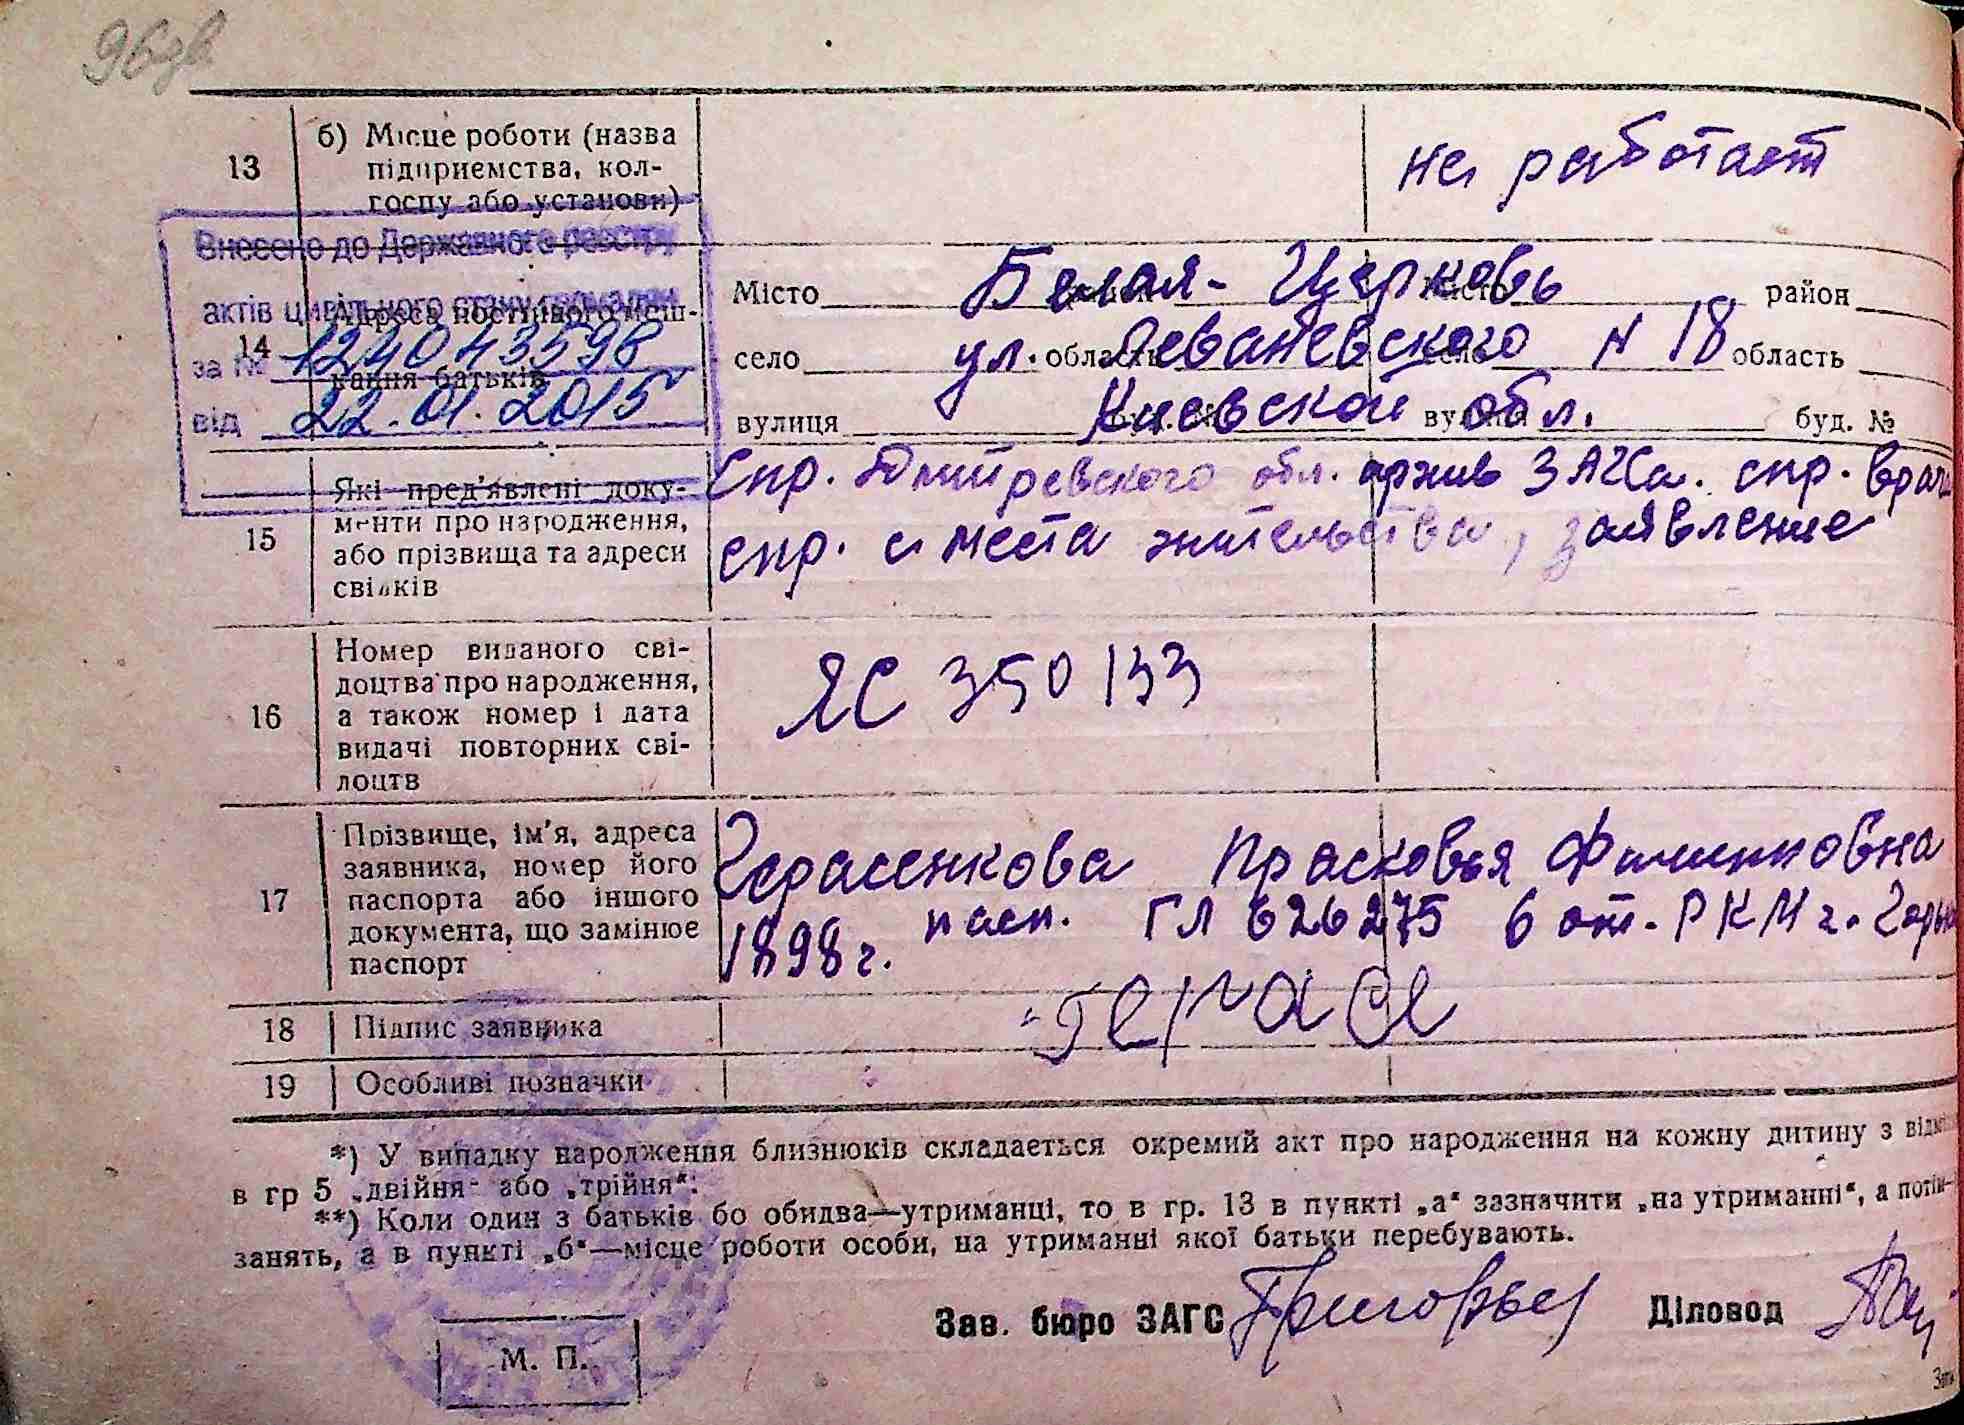 96зв
13 б) Місце роботи (назва
підприемства, кол-
госпу або установи)
не работает
Внесено до Державного реєстру
актів цивільного стану громадян
за № 124043598
від 22.01.2015
14 Адреса постійного меш-
кання батьків
Місто Белая-Церковь район
село ул. область Леваневского N 18 область
вулиця Киевской обл. вулиця буд. №
15 Які пред'явлені доку-
менти про народження,
або прізвища та адреси
свідків
спр. обл. архив ЗАГСа. спр. врача
спр. с места жительства, заявление
16 Номер виданого сві-
доцтва про народження,
а також номер і дата
видачі повторних сві-
доцтв
ЯС 350133
17 Прізвище, ім'я, адреса
заявника, номер його
паспорта або іншого
документа, що замінює
паспорт
Герасенкова Прасковья Филипповна
1898 г. пасп. ГЛ 626275 6 от. РКМ г.
18 Підпис заявника
19 Особливі позначки
*) У випадку народження близнюків складається окремий акт про народження на кожну дитину з
в гр 5 „двійня“ або „трійня“.
**) Коли один з батьків бо обидва—утриманці, то в гр. 13 в пункті „а“ зазначити „на утриманні“, а потім—
занять, а в пункті „б“—місце роботи особи, на утриманні якої батьки перебувають.
Зав. бюро ЗАГС Діловод
М. П.